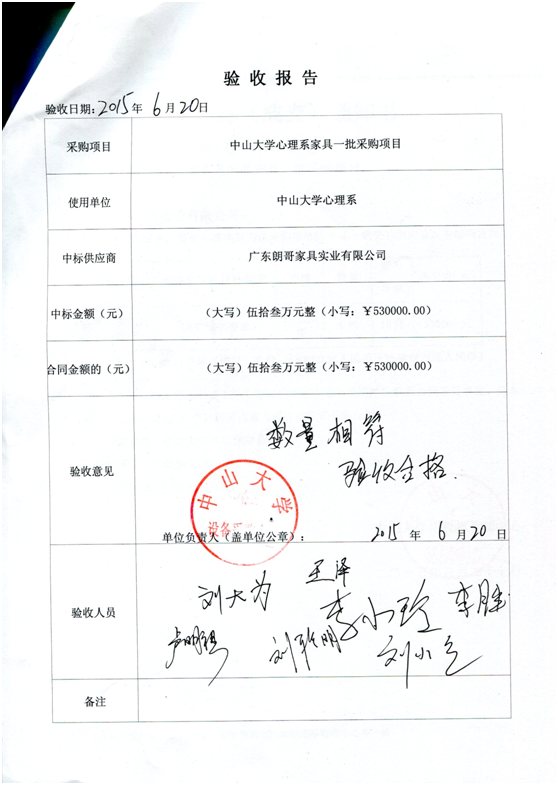 验收报告
验收日期：2015年 6月20日
采购项目 中山大学心理系家具一批采购项目
使用单位 中山大学心理系
中标供应商 广东朗哥家具实业有限公司
中标金额（元） （大写）伍拾叁万元整（小写：￥530000.00）
合同金额的（元） （大写）伍拾叁万元整（小写：￥530000.00）
数量相符
验收意见 验收合格.
中山大学
设备
单位负责人（盖单位公章）： 2015 年 6 月 20 日
王泽
验收人员 刘大为 李小珍 李胜
刘小
备注